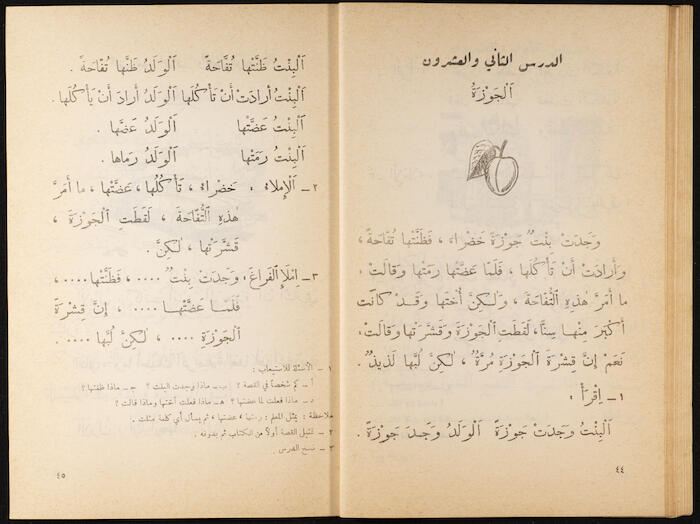 الدرس الثاني والعشرون
اَلْجَوْزَةُ
وَجَدَتْ بِنْتٌ جَوْزَةً خَضْراءَ ، فَظَنَّتْها تُفّاحَةً ،
وَأَرادَتْ أَنْ تَأْكُلَها ، فَلَمّا عَضَّتْها رَمَتْها وَقالَتْ :
ما أَمَرَّ هٰذِهِ التُّفّاحَةَ ، وَلٰكِنَّ أُخْتَها وَقَدْ كانَتْ
أَكْبَرَ مِنْها سِنًّا، لَقَطَتِ الْجَوْزَةَ وَقَشَّرَتْها وَقالَتْ :
نَعَمْ إِنَّ قِشْرَةَ الْجَوْزَةِ مُرَّةٌ ، لٰكِنَّ لُبَّها لَذيذٌ .
١ – اِقْرَأْ :
اَلْبِنْتُ وَجَدَتْ جَوْزَةً اَلْوَلَدُ وَجَدَ جَوْزَةً .
٤٤
اَلْبِنْتُ ظَنَّتْها تُفّاحَةً اَلْوَلَدُ ظَنَّها تُفّاحَةً .
اَلْبِنْتُ أَرادَتْ أَنْ تَأْكُلَها اَلْوَلَدُ أَرادَ أَنْ يَأْكُلَها .
اَلْبِنْتُ عَضَّتْها اَلْوَلَدُ عَضَّها .
اَلْبِنْتُ رَمَتْها اَلْوَلَدُ رَماها .
٢ – اَلْإِمْلاءُ : خَضْراءَ ، تَأْكُلُها ، عَضَّتْها ، ما أَمَرَّ
هٰذِهِ التُّفّاحَةَ ، لَقَطَتِ الْجَوْزَةَ ،
قَشَّرَتْها ، لٰكِنَّ .
٣ – اِمْلَإِ الْفَراغَ : وَجَدَتْ بِنْتٌ .... ، فَظَنَّتْها .... ،
فَلَمّا عَضَّتْها .... ، إِنَّ قِشْرَةَ
الْجَوْزَةِ .... ، لٰكِنَّ لُبَّها .... .
١ – الأسئلة للاستيعاب :
أ – كم شخصاً في القصة ؟ ب – ماذا وجدت البنت ؟ ج – ماذا ظنتها ؟
د – ماذا فعلت لما عضتها ؟ هـ – ماذا فعلت أختها وماذا قالت ؟
ملاحظة : يمثل المعلم : رمتها ، عضتها ، ثم يسأل أي كلمة مثلت .
٢ – تمثيل القصة أولاً من الكتاب ثم بدونه .
٣ – نسخ الدرس
٤٥